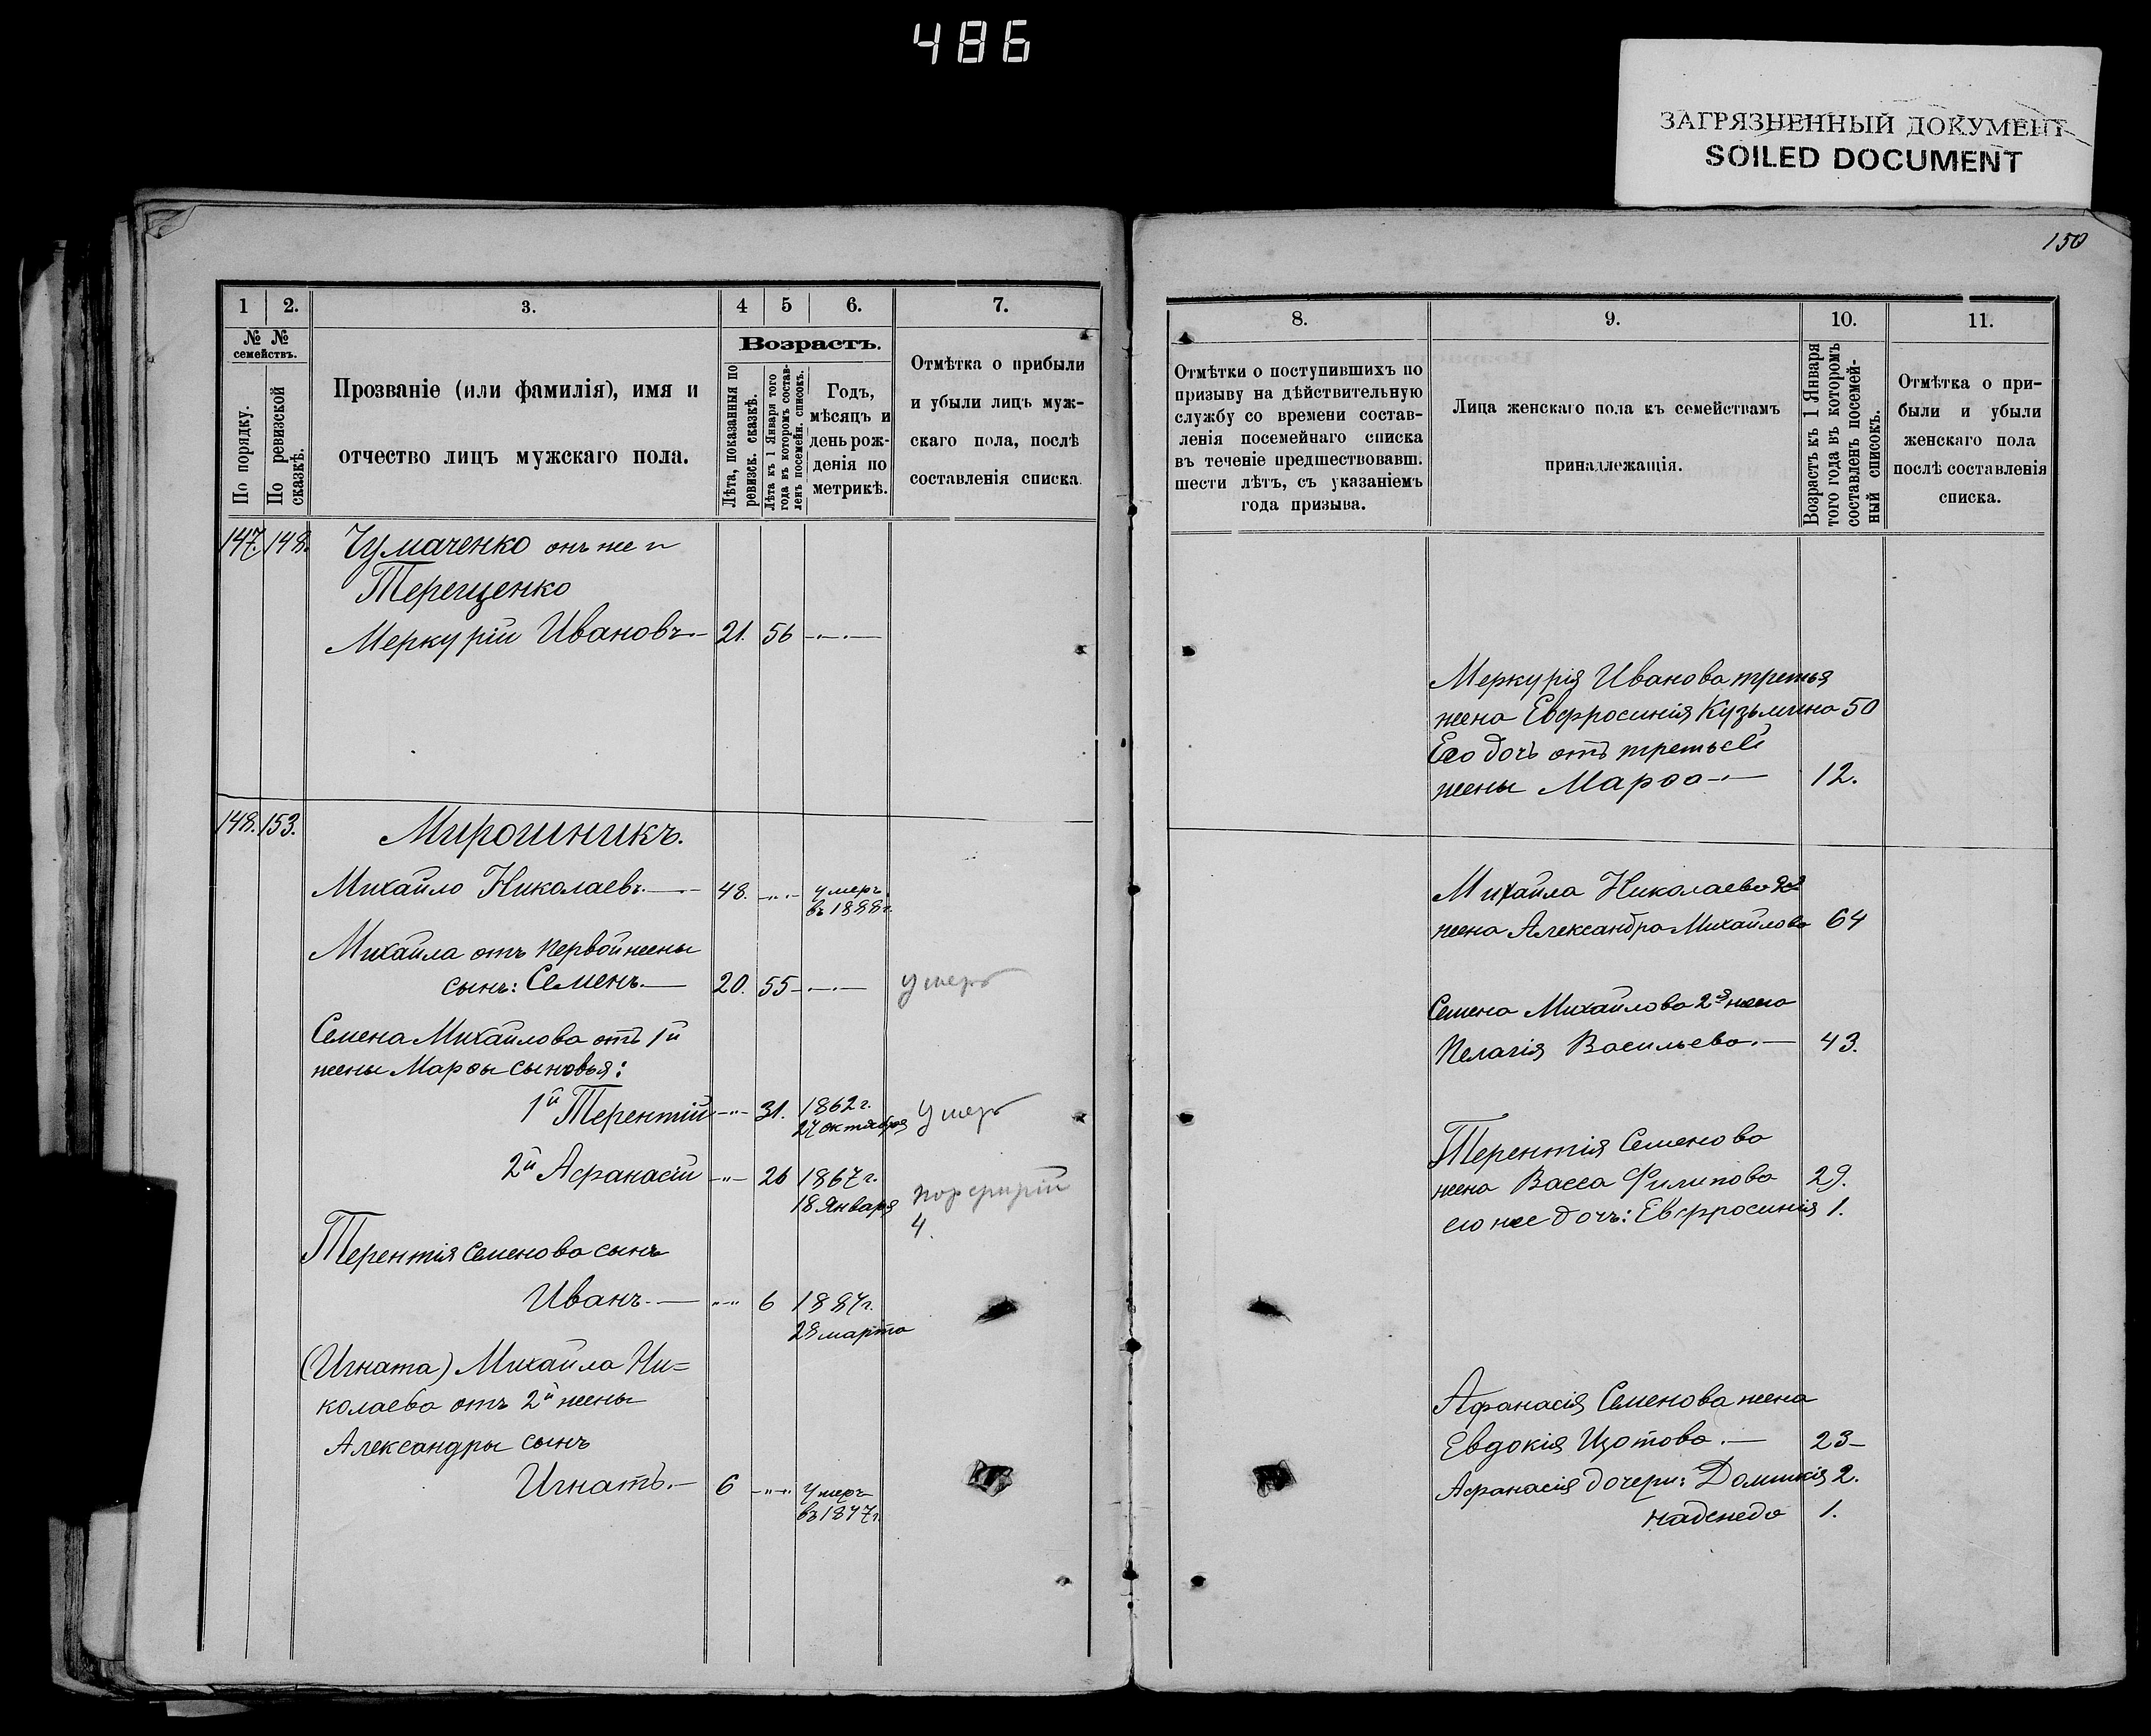 486
ЗАГРЯЗНЕННЫЙ ДОКУМЕНТ
SOILED DOCUMENT
150
1
2.
3.
4
5
6.
7.
№ №
семействъ.
По порядку.
По ревизской
сказкѣ.
Прозваніе (или фамилія), имя и
отчество лицъ мужскаго пола.
Возрастъ.
Лѣта, показанныя по
ревизск. сказкѣ.
Лѣта къ 1 Января того
года въ которомъ состав-
ленъ посемейн. списокъ.
Годъ,
мѣсяцъ и
день рож-
денія по
метрикѣ.
Отмѣтка о прибыли
и убыли лицъ муж-
скаго пола, послѣ
составленія списка.
147. 148. Чумаченко онъ же и
Терещенко
Меркурій Ивановъ.— 21. 56 —..—
148. 153. Мирошникъ.
Михайло Николаевъ.— 48. —..— умеръ
въ 1888г.
Михайла отъ первой жены
сынъ: Семенъ.— 20. 55 —..— умеръ
Семена Михайлова отъ 1й
жены Марѳы сыновья:
1й Терентій —..— 31. 1862 г.
27 октября умеръ
2й Афанасій —..— 26 1867 г.
18 Января порфирій
4.
Терентія Семенова сынъ
Иванъ.— —..— 6 1887г.
28 марта
(Игната) Михайла Ни=
колаева отъ 2й жены
Александры сынъ
Игнатъ.— 6 —..— Умеръ
въ 1847г.
8.
9.
10.
11.
Отмѣтки о поступившихъ по
призыву на дѣйствительную
службу со времени состав-
ленія посемейнаго списка
въ теченіе предшествовавш.
шести лѣтъ, съ указаніемъ
года призыва.
Лица женскаго пола къ семействамъ
принадлежащія.
Возрастъ къ 1 Января
того года въ которомъ
составленъ посемей-
ный списокъ.
Отмѣтка о при-
были и убыли
женскаго пола
послѣ составленія
списка.
Меркурія Иванова третья
жена Евфросинія Кузьмина 50
Его дочь отъ третьей
жены Марѳа.— 12.
Михайла Николаева 2я
жена Александра Михайлова 64
Семена Михайлова 2я жена
Пелагія Васильева.— 43.
Терентія Семенова
жена Васса Филипова 29.
его же дочь: Евфросинія 1.
Афанасія Семенова жена
Евдокія Изотова.— 23—
Афанасія дочери: Домникія 2.
Надежда 1.